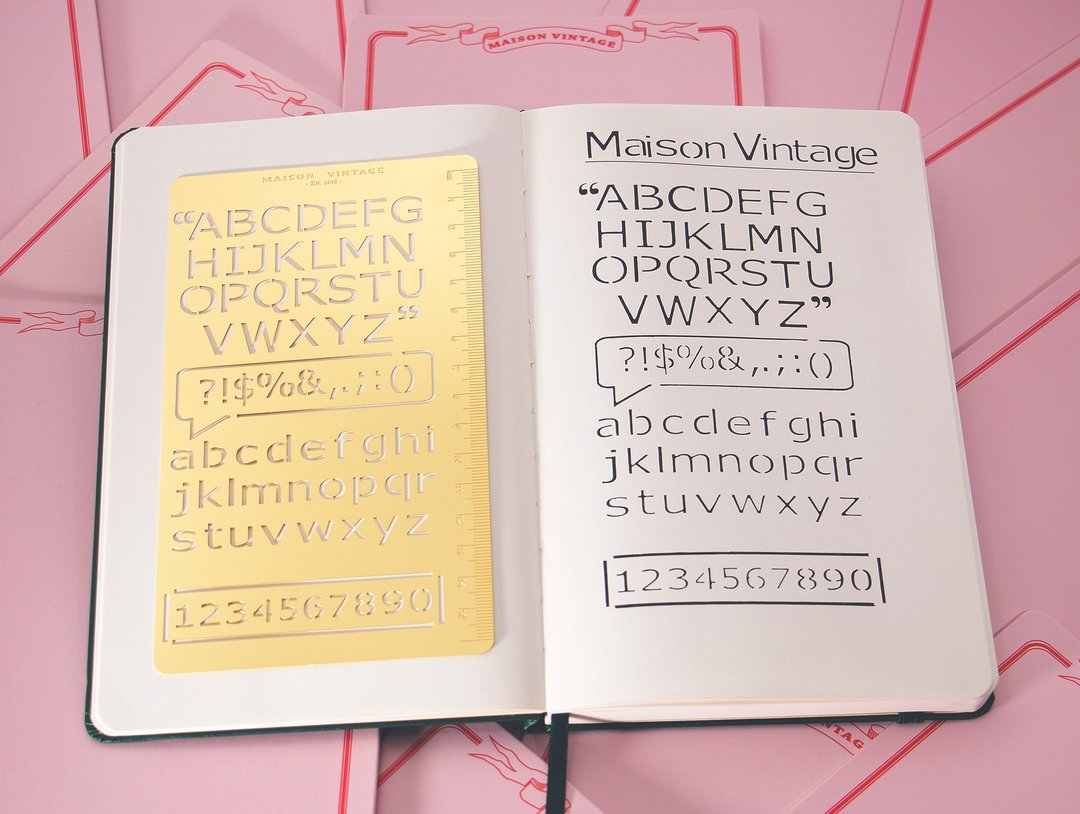 MAISON VINTAGE
MAISON VINTAGE
- Est. 2018 -
“ABCDEFG
HIJKLMN
OPQRSTU
VWXYZ”
?!$%&,.;:()
abcdefghi
jklmnopqr
stuvwxyz
1234567890
Maison Vintage
“ABCDEFG
HIJKLMN
OPQRSTU
VWXYZ”
?!$%&,.;:()
abcdefghi
jklmnopqr
stuvwxyz
1234567890